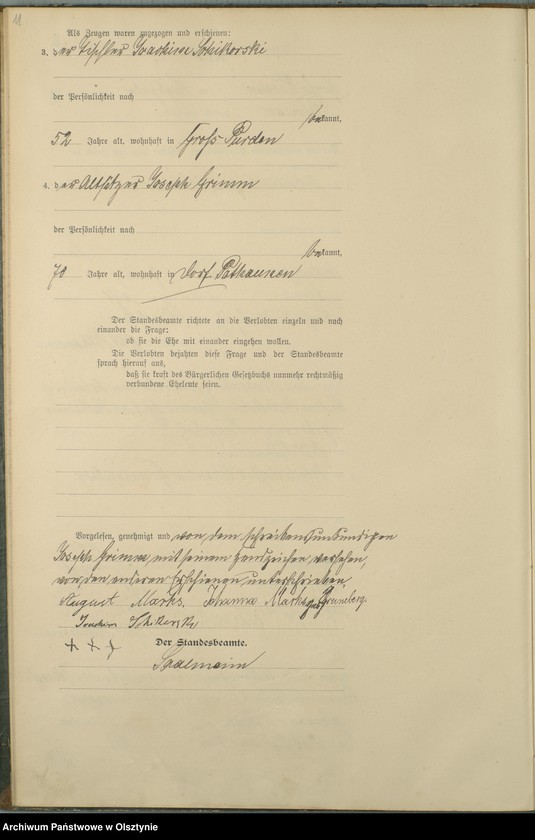 11
Als Zeugen waren zugezogen und erschienen:
3. der Tischler Joachim Schikorski
der Persönlichkeit nach
bekannt,
52 Jahre alt, wohnhaft in Groß Purden
4. der Altsitzer Joseph Grimm
der Persönlichkeit nach
bekannt,
70 Jahre alt, wohnhaft in Dorf Pathaunen
Der Standesbeamte richtete an die Verlobten einzeln und nach
einander die Frage:
ob sie die Ehe mit einander eingehen wollen.
Die Verlobten bejahten diese Frage und der Standesbeamte
sprach hierauf aus,
daß sie kraft des Bürgerlichen Gesetzbuchs nunmehr rechtmäßig
verbundene Eheleute seien.
Vorgelesen, genehmigt und von dem schreibensunkundigen
Joseph Grimm mit seinem Handzeichen versehen,
von den anderen Erschienenen unterschrieben
August Marks. Johanna Marks geb Grüneberg.
Joachim Schikorski
+ + +
Der Standesbeamte.
Archiwum Państwowe w Olsztynie